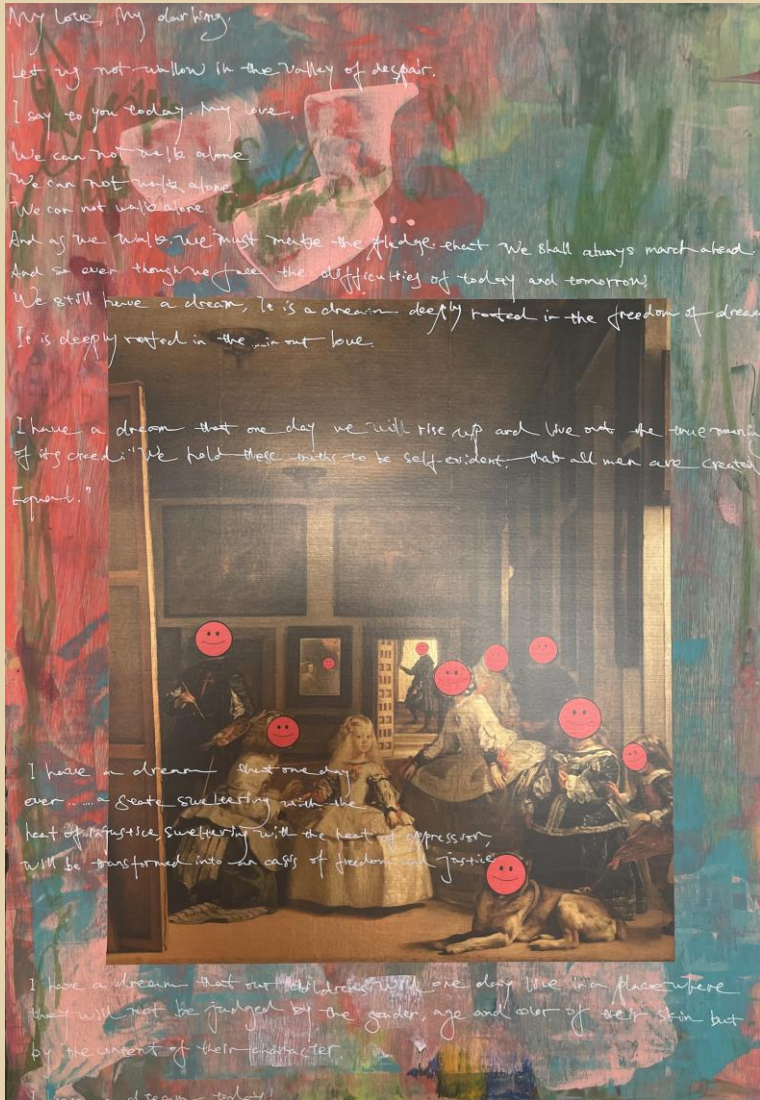 My love, My darling.
Let us not wallow in the valley of despair.
I say to you today. My love.
We can not walk alone
We can not walk alone.
We can not walk alone
And as we walk, we must make the pledge that We shall always march ahead.
And so even though we face the difficulties of today and tomorrow,
We still have a dream, It is a dream deeply rooted in the freedom of dream
It is deeply rooted in the ... in our love.
I have a dream that one day we will rise up and live out the true meaning
of its creed: "We hold these truths to be self-evident, that all men are created
Equal."
I have a dream that one day
even ..... a state sweltering with the
heat of injustice, sweltering with the heat of oppression,
will be transformed into an oasis of freedom and justice
I have a dream that our children will one day live in a place where
they will not be judged by the gender, age and color of their skin but
by the content of their character.
I have a dream today!